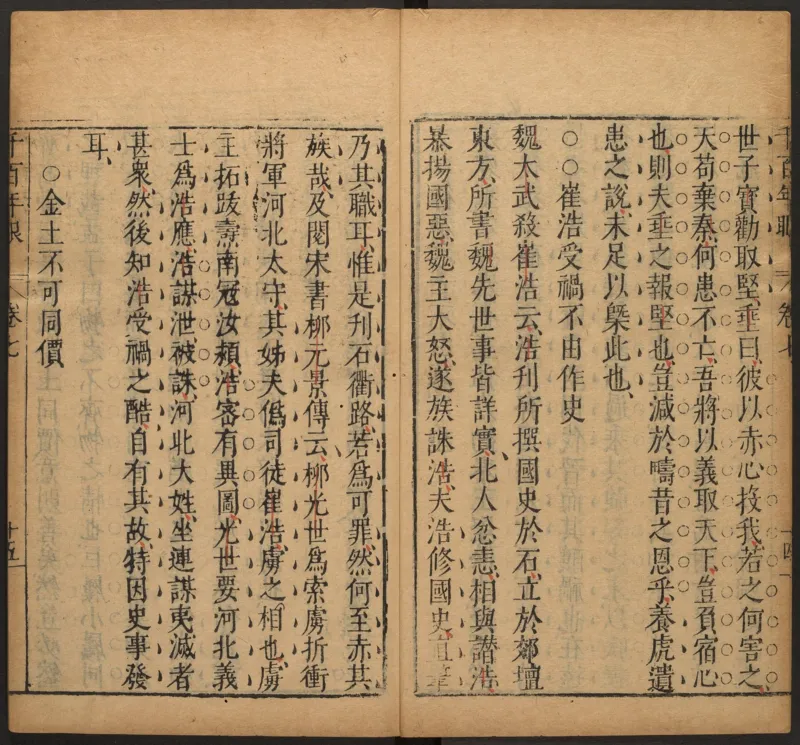 千百年眼 卷七 十四
世子寶勸取堅垂曰彼以赤心投我若之何害之
天苟棄秦何患不亡吾將以義取天下豈負宿心
也則夫垂之報堅也豈減於疇昔之恩乎養虎遺
患之說未足以槩此也
○○崔浩受禍不由作史
魏太武殺崔浩云浩刊所撰國史於石立於郊壇
東方所書魏先世事皆詳實北人忿恚相與譖浩
暴揚國惡魏主大怒遂族誅浩夫浩修國史直筆
乃其職耳惟是刊石衢路若為可罪然何至赤其
族哉及閱宋書柳元景傳云柳光世為索虜折衝
將軍河北太守其姊夫偽司徒崔浩虜之相也虜
主拓跋燾南寇汝潁浩密有異圖光世要河北義
士為浩應浩謀泄被誅河北大姓坐連謀夷滅者
甚衆然後知浩受禍之酷自有其故特因史事發
耳
○金土不可同價
千百年眼 卷七 十五